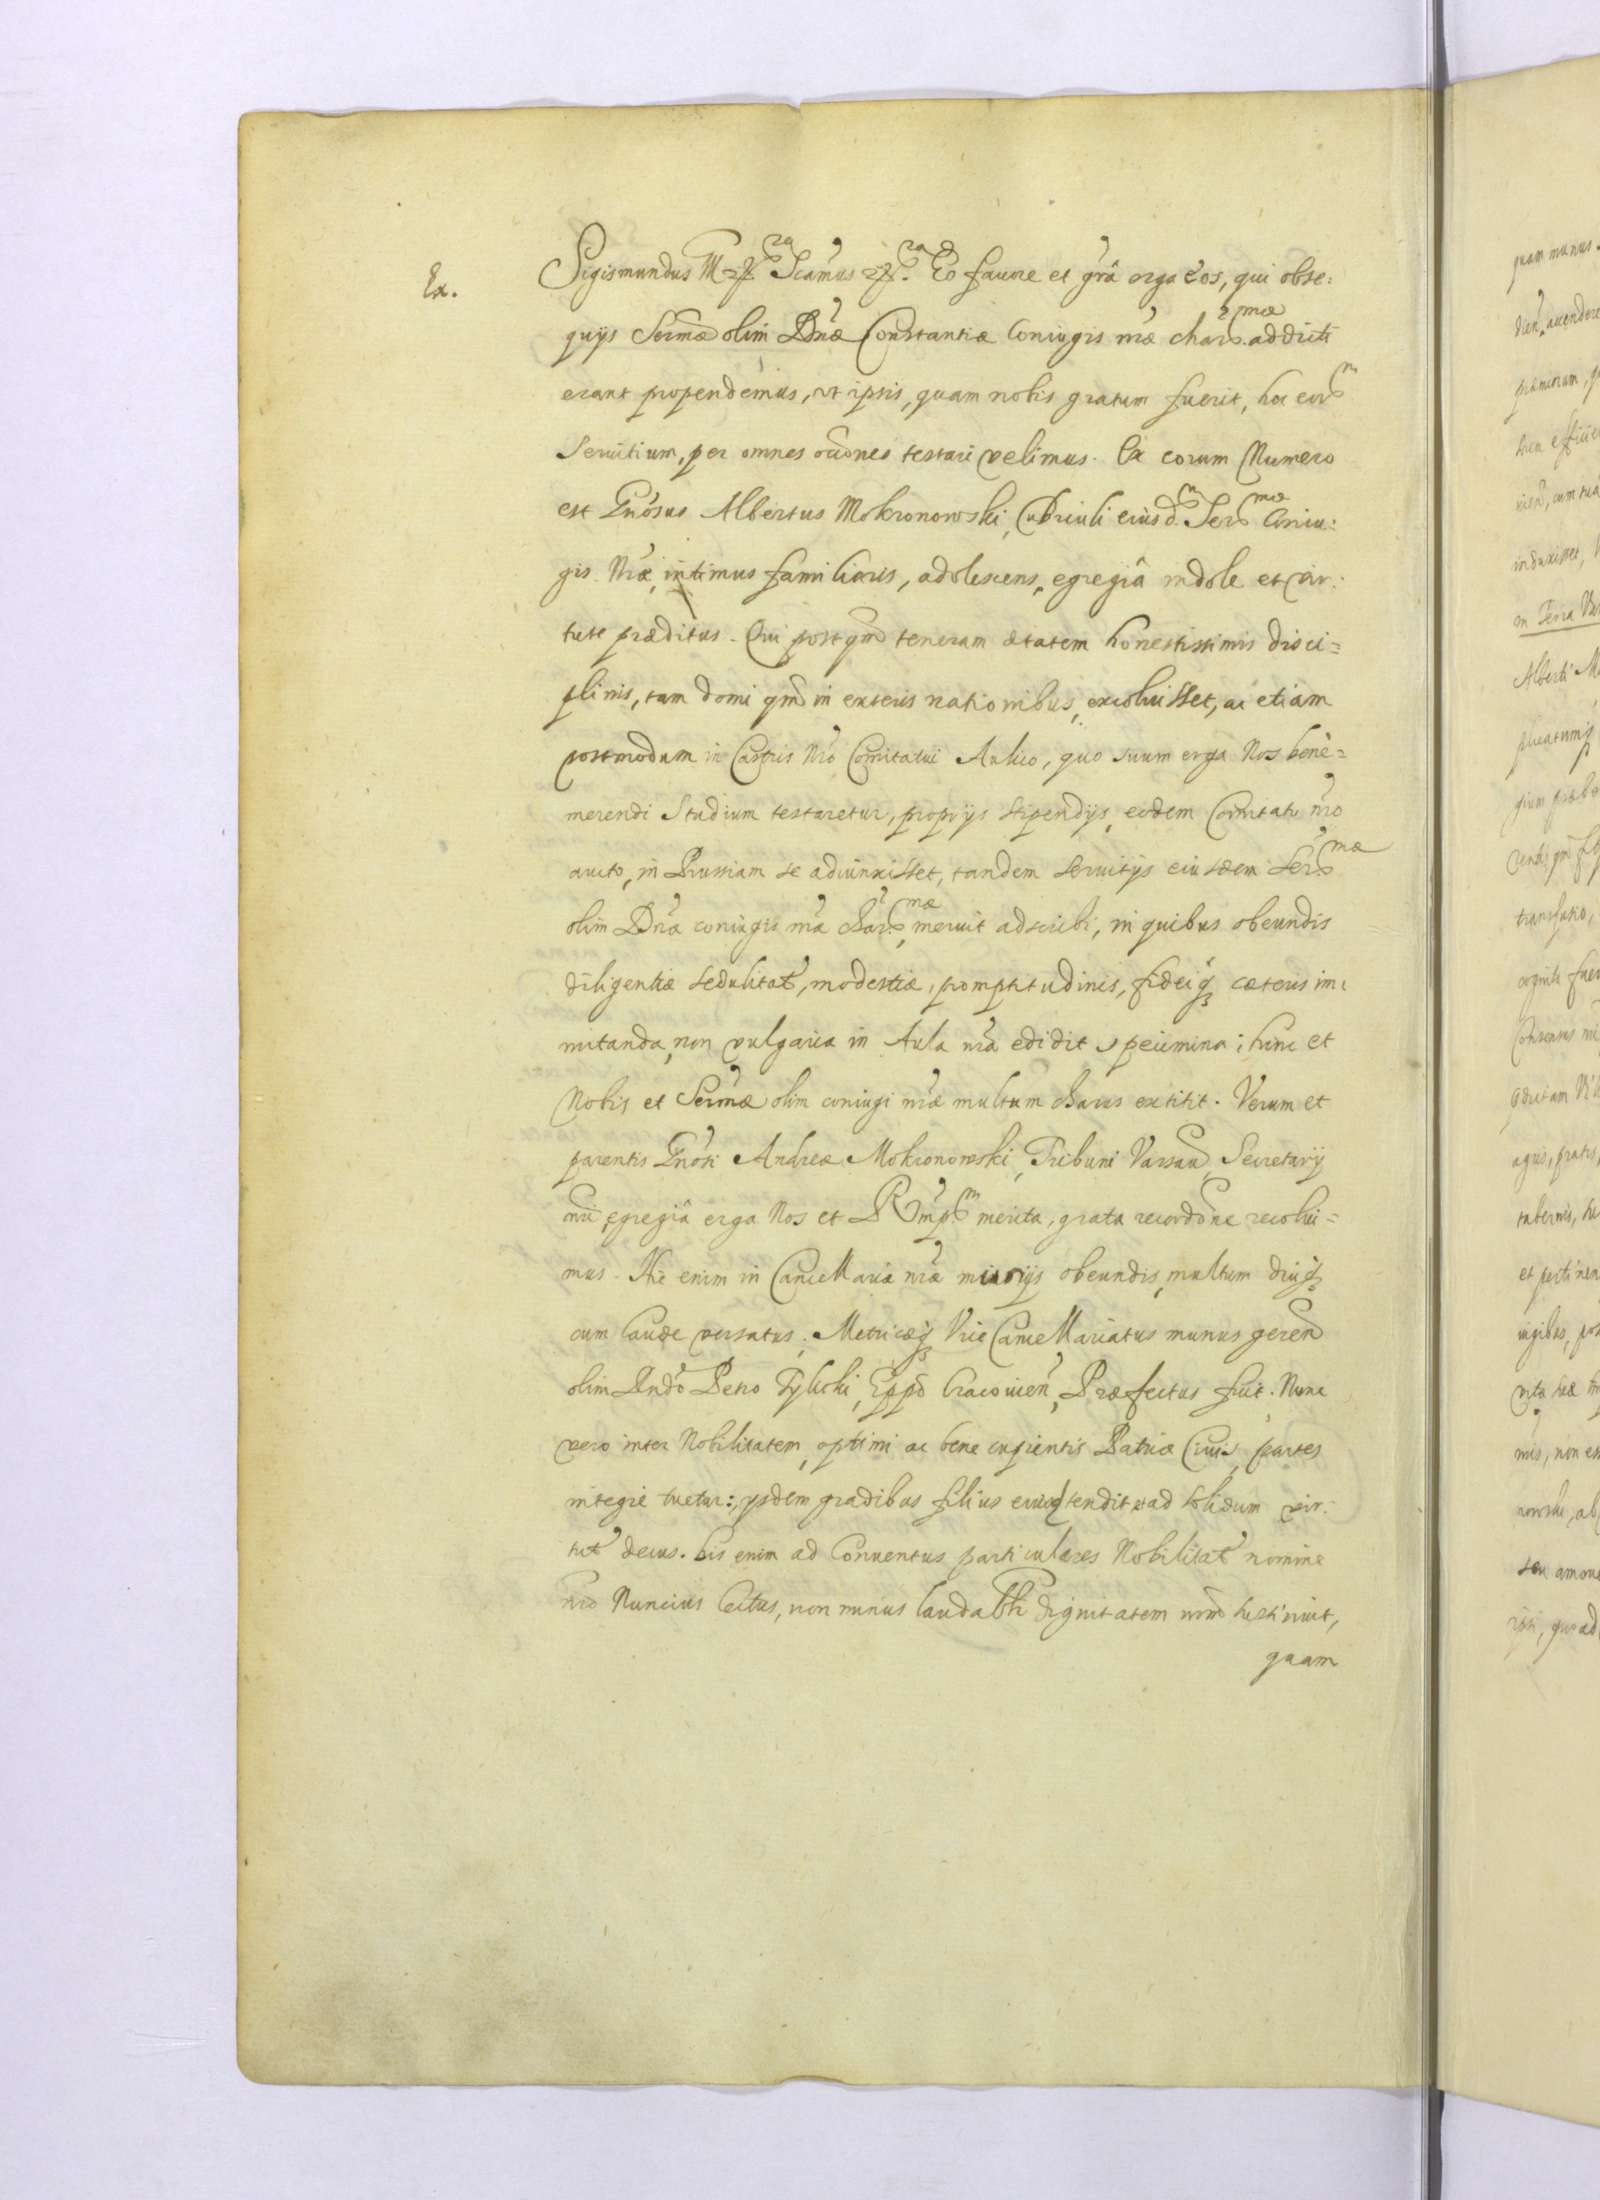 Ex.
Sigismundus III etc. Scamus etc. Eo fauore et grâ erga eos, qui obse:
quijs Sermæ olim Dnæ Constantiæ Coniugis nræ charmæ addicti
erant propendemus, vt ipsis, quam nobis gratum fuerit, hoc eorm
Seruitium, per omnes occones testari velimus. Ex eorum Numero
est Gnosus Albertus Mokronowski, Cubiculi eiusdm Sermæ Coniu:
gis Nræ, intimus familiaris, adolescens, egregiâ indole et vir:
tute præditus. Qui postqm teneram ætatem honestissimis disci=
plinis, tam domi qm in exteris nationibus, excoluisset, ac etiam
postmodum in Castris Nro Comitatui Aulico, quo suum erga Nos bene=
merendi Studium testaretur, proprijs stipendijs, eodem Comitatu nro
aucto, in Prussiam se adiunxisset, tandem seruitijs eiusdem Sermæ
olim Dnæ coniugis nræ charmæ, meruit adscribi, in quibus obeundis
diligentiæ sedulitat, modestiæ, promptitudinis, fideiq cæteris im:
mitanda, non vulgaria in Aula nra edidit specimina; hinc et
Nobis et Sermæ olim coniugi nræ multum charus extitit. Verum et
parentis Gnosi Andreæ Mokronowski, Tribuni Varsau, Secretarij
nri, egregiâ erga Nos et Rempm merita, grata recordone recolui=
mus. Hic enim in Cancellaria nra munijs obeundis, multum diuq
cum laude versatus, Metricæq Vice Cancellariatus munus geren
olim Rndo Petro Tylicki, Eppo Cracouien, Præfectus fuit. Nunc
vero inter Nobilitatem, optimi ac bene cupientis Patriæ Ciuis, partes
integre tuetur: ijsdem gradibus filius eiusd tendit ad solidum vir:
tut decus. bis enim ad Conuentus particulares Nobilitat nomine
nro Nuncius lectus, non minus laudabli dignitatem nram sustinuit,
quam